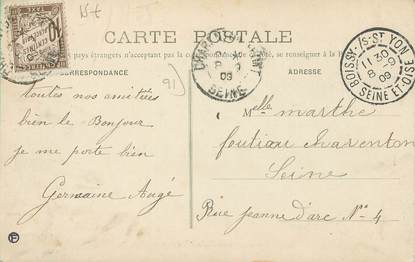 N+
CARTE POSTALE
pays étrangers n'acceptant pas la correspondance au se renseigner à la
CORRESPONDANCE
ADRESSE
10 CENTIMES
A PERCEVOIR
SEINE
BOISSY-S-ST YON
11 30
8 -9
09
SEINE ET OISE
91
toutes nos amitiées
bien le Bonjour
je me porte bien
Germaine Augé
Melle marthe
foutiau Charenton
Seine
Rue jeanne d'arc No 4